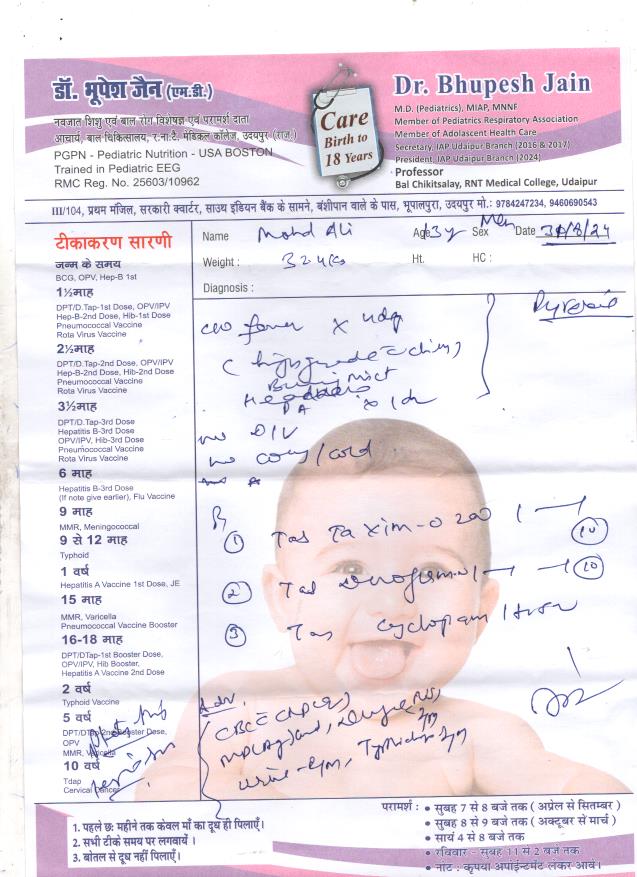 डॉ. भूपेश जैन (एम.डी.)
नवजात शिशु एवं बाल रोग विशेषज्ञ एवं परामर्श दाता
आचार्य, बाल चिकित्सालय, र.ना.टै. मेडिकल कॉलेज, उदयपुर (राज.)
PGPN - Pediatric Nutrition - USA BOSTON
Trained in Pediatric EEG
RMC Reg. No. 25603/10962
Care
Birth to
18 Years
Dr. Bhupesh Jain
M.D. (Pediatrics), MIAP, MNNF
Member of Pediatrics Respiratory Association
Member of Adolascent Health Care
Secretary, IAP Udaipur Branch (2016 & 2017)
President, IAP Udaipur Branch (2024)
Professor
Bal Chikitsalay, RNT Medical College, Udaipur
III/104, प्रथम मंजिल, सरकारी क्वार्टर, साउथ इडियन बैंक के सामने, बंशीपान वाले के पास, भूपालपुरा, उदयपुर मो.: 9784247234, 9460690543
टीकाकरण सारणी
जन्म के समय
BCG, OPV, Hep-B 1st
1½माह
DPT/D.Tap-1st Dose, OPV/IPV
Hep-B-2nd Dose, Hib-1st Dose
Pneumococcal Vaccine
Rota Virus Vaccine
2½माह
DPT/D.Tap-2nd Dose, OPV/IPV
Hep-B-2nd Dose, Hib-2nd Dose
Pneumococcal Vaccine
Rota Virus Vaccine
3½माह
DPT/D.Tap-3rd Dose
Hepatitis B-3rd Dose
OPV/IPV, Hib-3rd Dose
Pneumococcal Vaccine
Rota Virus Vaccine
6 माह
Hepatitis B-3rd Dose
(If note give earlier), Flu Vaccine
9 माह
MMR, Meningococcal
9 से 12 माह
Typhoid
1 वर्ष
Hepatitis A Vaccine 1st Dose, JE
15 माह
MMR, Varicella
Pneumococcal Vaccine Booster
16-18 माह
DPT/DTap-1st Booster Dose,
OPV/IPV, Hib Booster,
Hepatitis A Vaccine 2nd Dose
2 वर्ष
Typhoid Vaccine
5 वर्ष
DPT/DTap-2nd Booster Dese,
OPV
MMR, Varicella
10 वर्ष
Tdap
Cervical Cancer
Name Mohd Ali Age 13y Sex Date 31/8/24
Weight : Ht. HC :
Diagnosis :
Pyrexia
Headache
no cough/cold
① Tab Taxim-O 200 1 — 1 ⑩
② Tab 1 — 1 ⑩
③ Tab Cyclopam
Adv
1. पहले छ: महीने तक केवल माँ का दूध ही पिलाएँ।
2. सभी टीके समय पर लगवायें ।
3. बोतल से दूध नहीं पिलाएँ।
परामर्श : • सुबह 7 से 8 बजे तक ( अप्रेल से सितम्बर )
• सुबह 8 से 9 बजे तक ( अक्टूबर से मार्च )
• सायं 4 से 8 बजे तक
• रविवार - सुबह 11 से 2 बजे तक
• नोट : कृपया अपॉइन्टमेंट लेकर आवें।